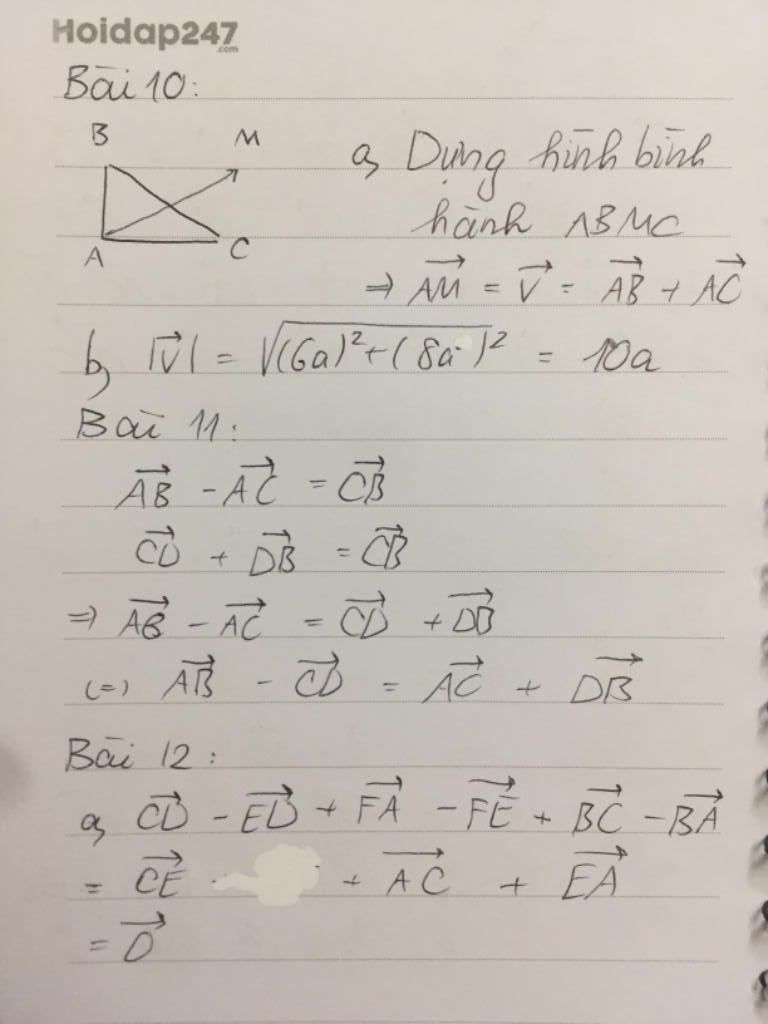 Hoidap247
.com
Bài 10:
B M
A C
a, Dựng hình bình
hành ABMC
⇒ \overrightarrow{AM} = \overrightarrow{V} = \overrightarrow{AB} + \overrightarrow{AC}
b, |\overrightarrow{V}| = √((6a)² + (8a)²) = 10a
Bài 11:
\overrightarrow{AB} - \overrightarrow{AC} = \overrightarrow{CB}
\overrightarrow{CD} + \overrightarrow{DB} = \overrightarrow{CB}
⇒ \overrightarrow{AB} - \overrightarrow{AC} = \overrightarrow{CD} + \overrightarrow{DB}
(=) \overrightarrow{AB} - \overrightarrow{CD} = \overrightarrow{AC} + \overrightarrow{DB}
Bài 12:
a, \overrightarrow{CD} - \overrightarrow{ED} + \overrightarrow{FA} - \overrightarrow{FE} + \overrightarrow{BC} - \overrightarrow{BA}
= \overrightarrow{CE} + \overrightarrow{AC} + \overrightarrow{EA}
= \overrightarrow{O}